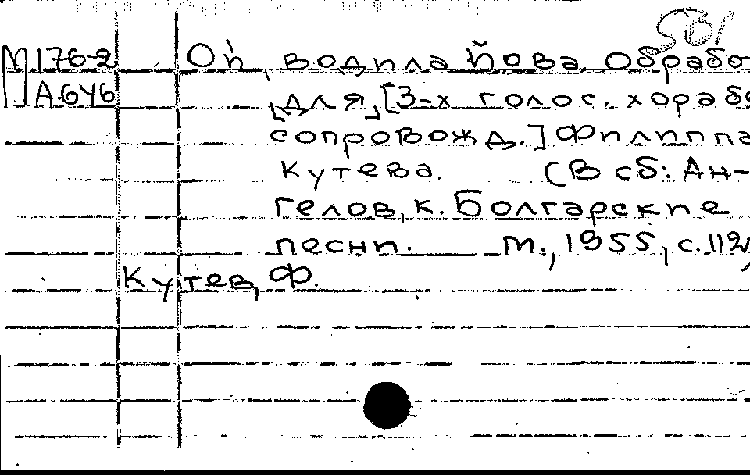 501
М 176-2 Ой, водила Йова. Обрабо
А646 для [3-х голос. хора бе
сопровожд.] Филиппа
Кутева. (В сб: Ан-
гелов, К. Болгарские
песни. М., 1955, с. 112)
Кутев, Ф.